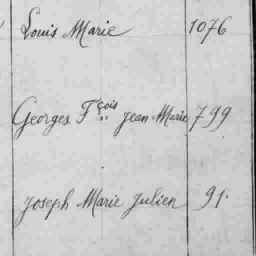 Louis Marie 1076
Georges Fçois Jean Marie 799
Joseph Marie Julien 91.